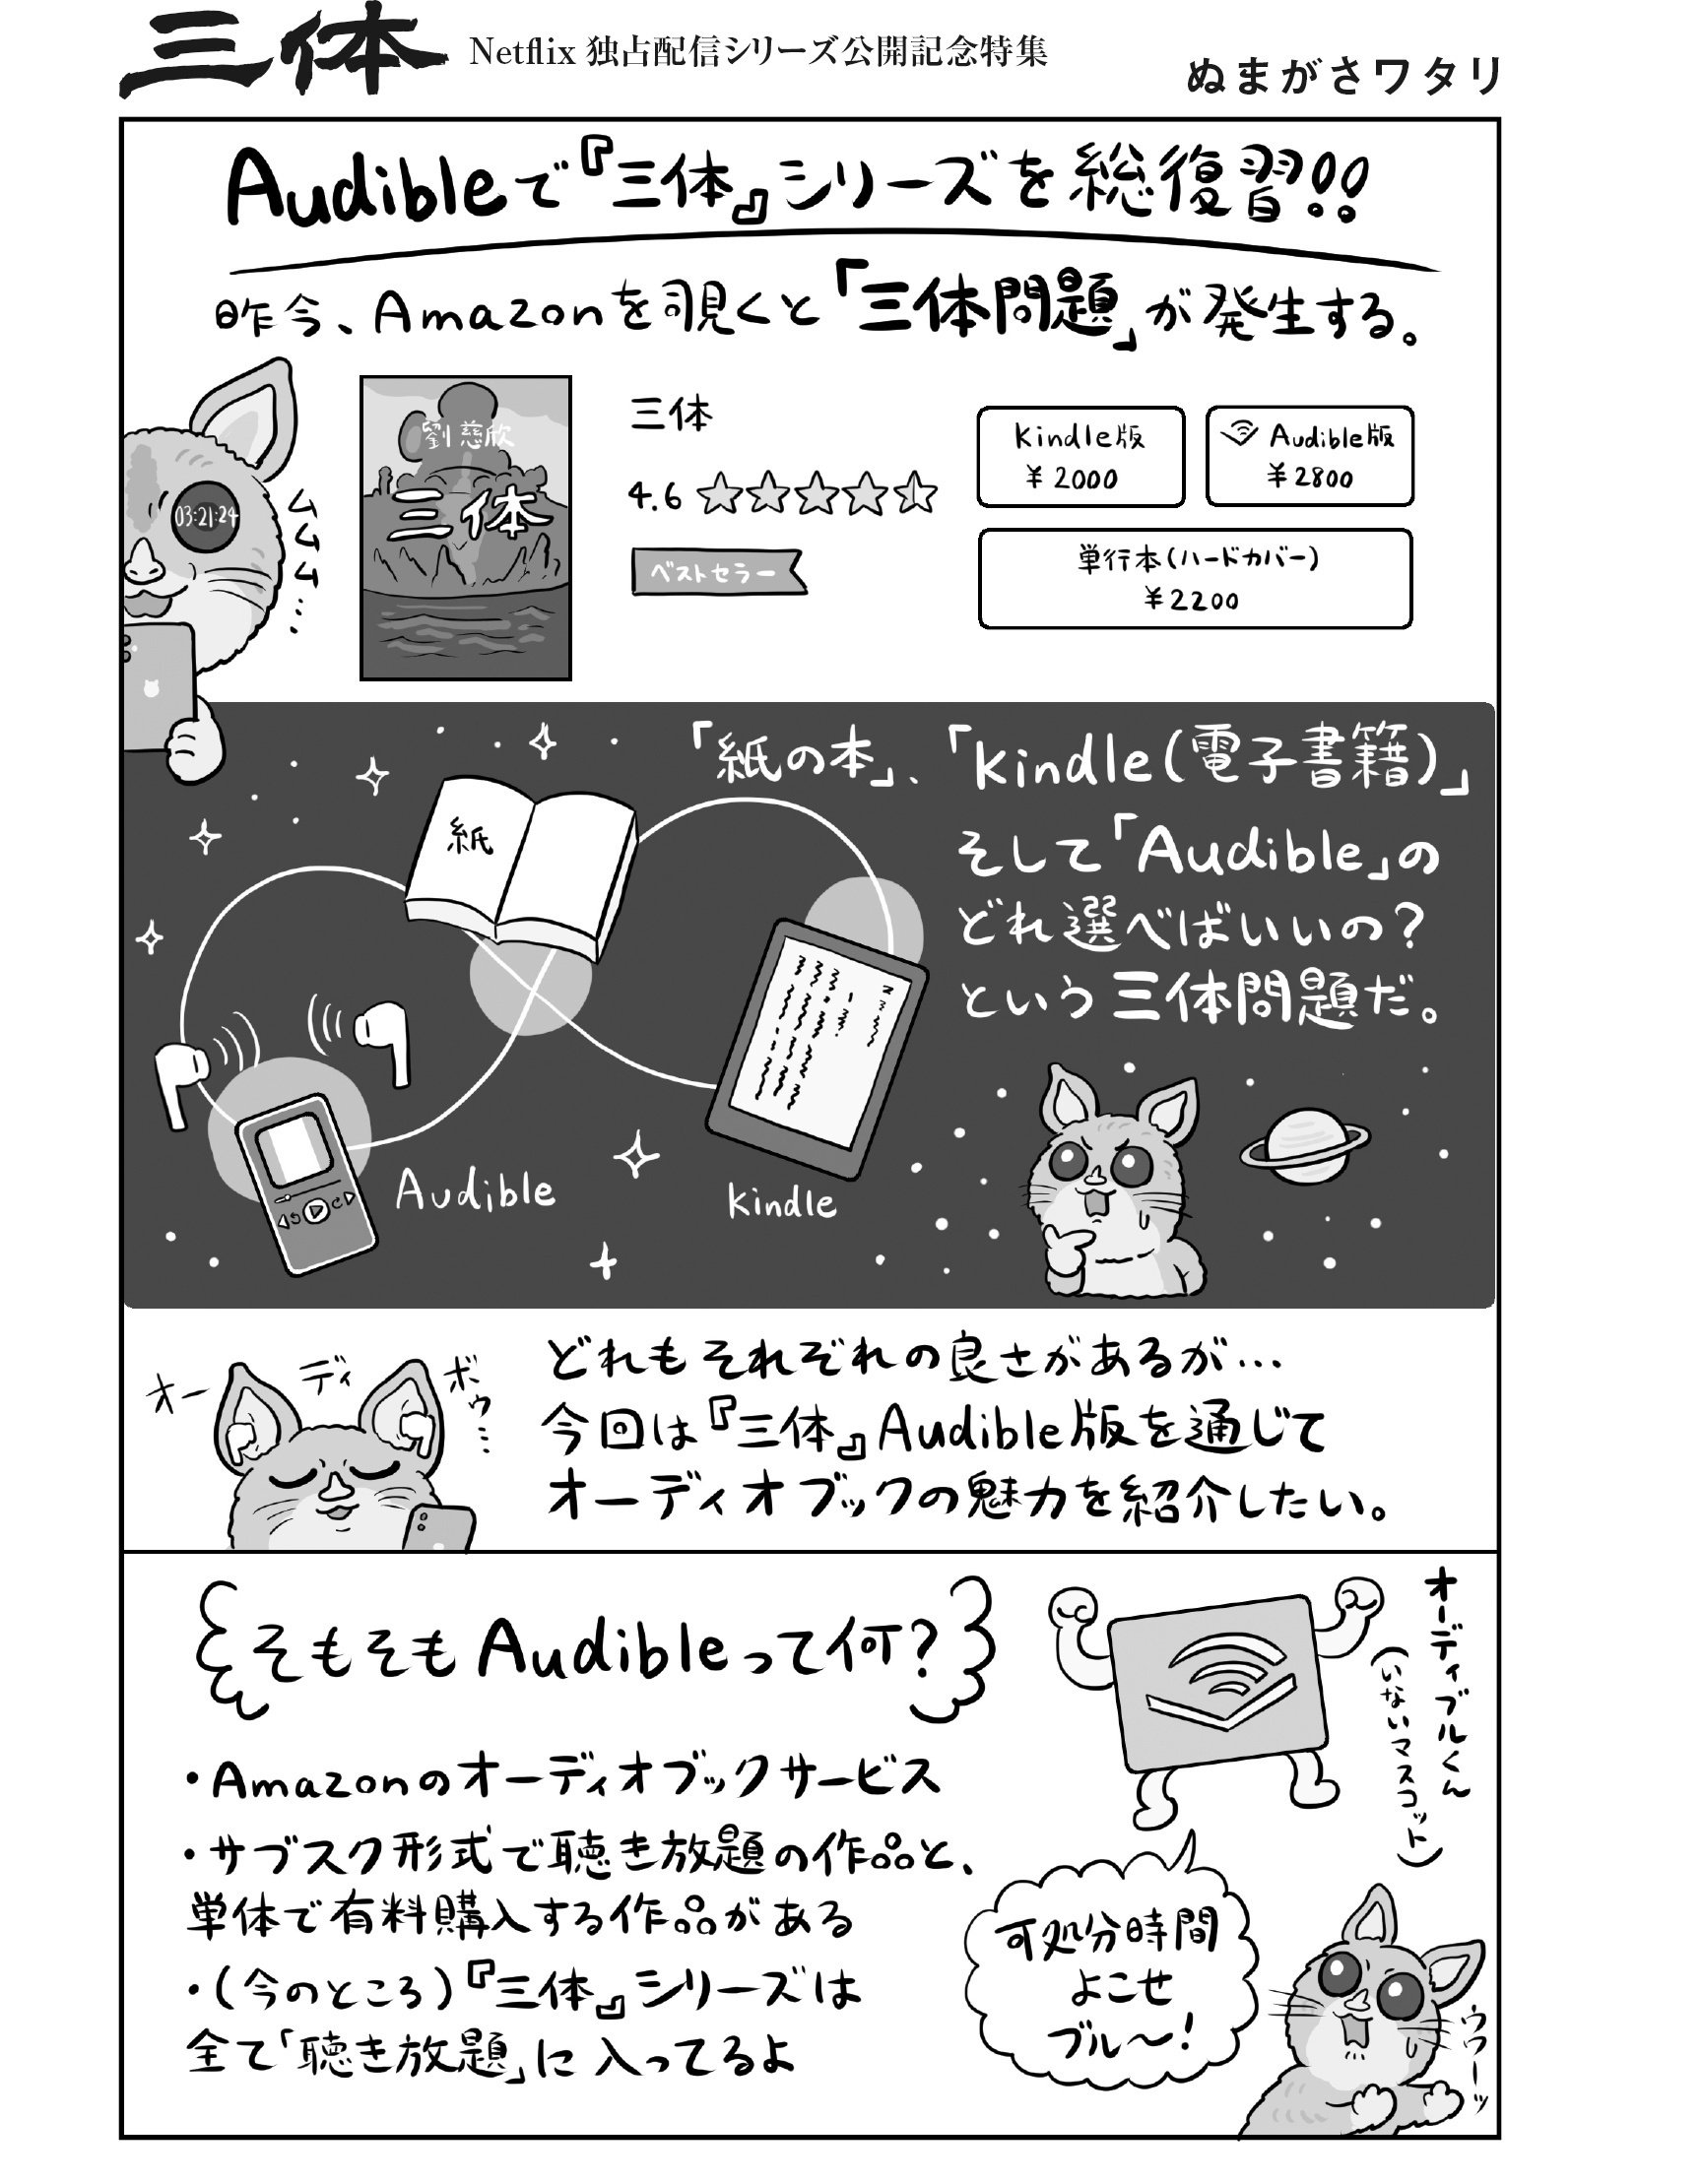 三体
Netflix 独占配信シリーズ公開記念特集
ぬまがさワタリ
Audibleで『三体』シリーズを総復習!!
昨今、Amazonを覗くと「三体問題」が発生する。
03:21:24
ムムム…
劉慈欣
三体
三体
4.6
ベストセラー
Kindle版
¥2000
Audible版
¥2800
単行本(ハードカバー)
¥2200
「紙の本」、「Kindle(電子書籍)」
そして「Audible」の
どれ選べばいいの?
という三体問題だ。
紙
Audible
Kindle
オーディボゥ…
どれもそれぞれの良さがあるが…
今回は『三体』Audible版を通じて
オーディオブックの魅力を紹介したい。
そもそもAudibleって何?
オーディブルくん
(いないマスコット)
・Amazonのオーディオブックサービス
・サブスク形式で聴き放題の作品と、
単体で有料購入する作品がある
・(今のところ)『三体』シリーズは
全て「聴き放題」に入ってるよ
可処分時間
よこせ
ブル〜!
ウワーッ